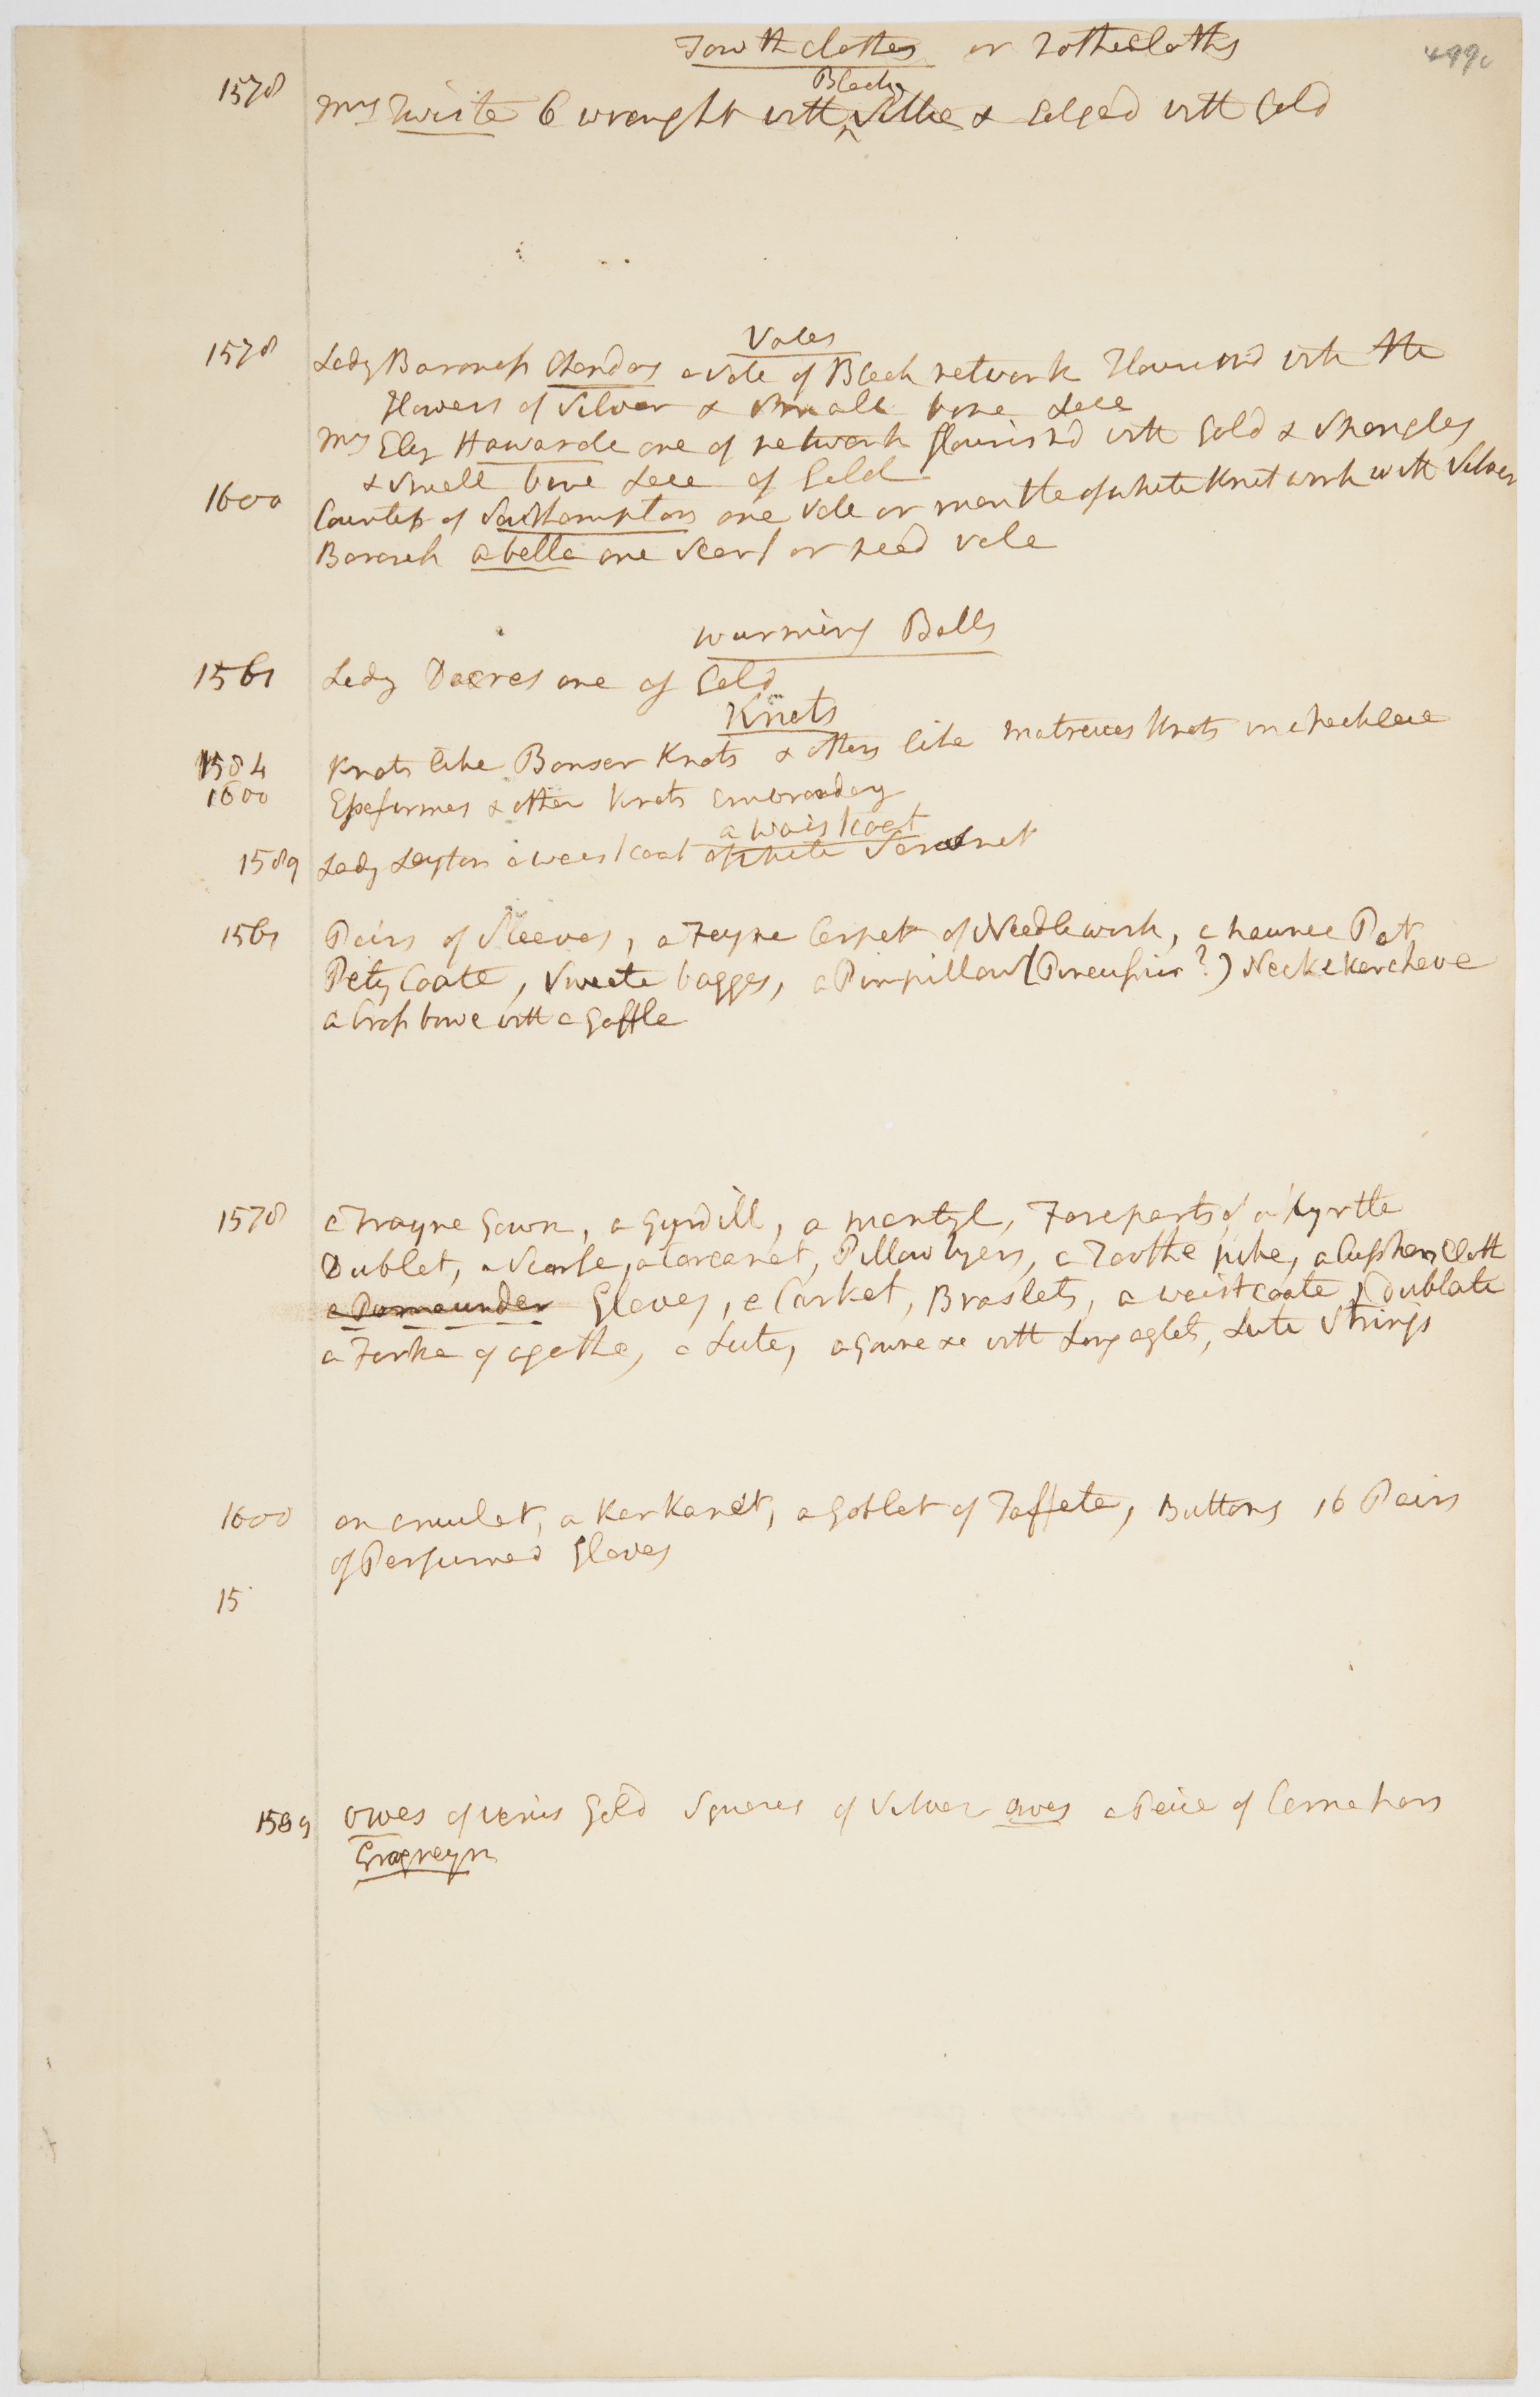 Towthclothes or Tothecloths
499c
1578 Mrs Twiste 6 wrought with Black Silke & Edged with Gold
Vales
1578 Lady Baroness Chandos a vale of Black network Flourished with the
flowers of Silver & Small bone Lace
Mrs Eliz Hawarde one of network flourish'd with Gold & Spangles
& Small bone Lace of Gold
1600 Countess of Southampton one Vale or mantle of white Knit work with Silver
Baroness Arbella one Scarf or head vale
Warming Balls
1561 Lady Dacres one of Gold
Knots
1584 Knots like Bouser Knots & others like Matreues Knots in a necklace
1600 Esseformes & other Knots embroidery
a Waistcoat
1589 Lady Leyton a waistcoat of white Sarsnet
1561 Pairs of Sleeves, a Feyne Carpet of Needlework, a haunce Pot
Pety Coate, Sweete bagges, a Pinpillow (Pincushin?) Neckekercheve
a Cross bowe with a Gaffle
1578 a Trayne Gown, a Gyrdill, a mantyl, Foreparts of a kyrtle
Dublet, a Scarfe, a Carcanet, Pillowbyers, a Toothe pike, a Cushen Cloth
a Pomaunder Gloves, a Casket, Braslets, a waistcoate, Dublate
a Forke of agathe, a Lute, a Gowne &c with Long aglets, Lute Strings
1600 an amulet, a Karkanet, a Goblet of Taffeta, Buttons 16 Pairs
of Perfumed Gloves
15
1589 Owes of Venis Gold Squares of Silver owes a Peice of Carnation
Grogreyn